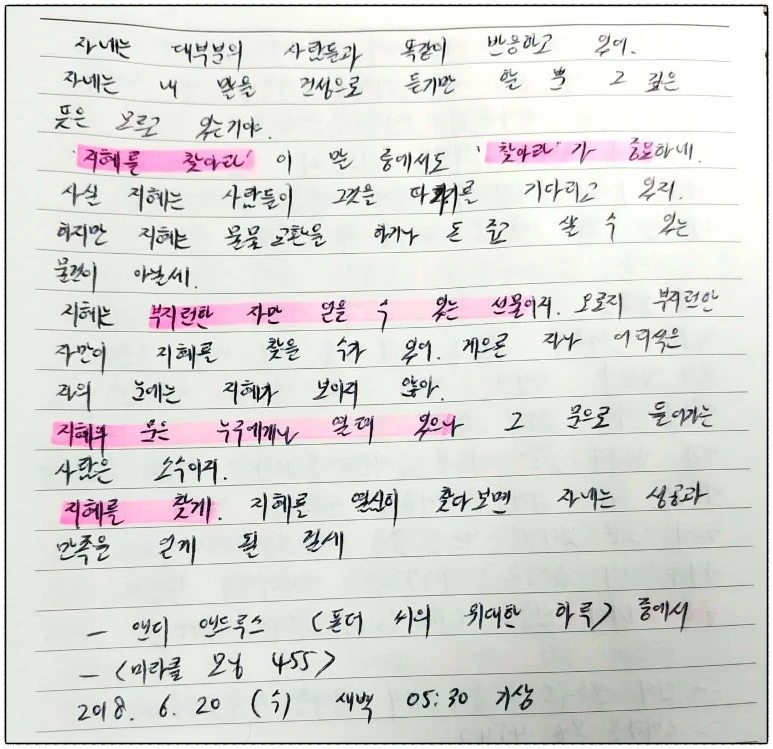 자네는 대부분의 사람들과 똑같이 반응하고 있어.
자네는 내 말을 건성으로 듣기만 할 뿐 그 깊은
뜻은 모르고 있는거야.
'지혜를 찾아라' 이 말 중에서도 '찾아라'가 중요하네.
사실 지혜는 사람들이 그것을 따기를 기다리고 있지.
하지만 지혜는 물물교환을 하거나 돈 주고 살 수 있는
물건이 아닐세.
지혜는 부지런한 자만 얻을 수 있는 선물이지. 오로지 부지런한
자만이 지혜를 찾을 수가 있어. 게으른 자나 어리석은
자의 눈에는 지혜가 보이지 않아.
지혜의 문은 누구에게나 열려 있으나 그 문으로 들어가는
사람은 소수이지.
지혜를 찾게. 지혜를 열심히 찾다보면 자네는 성공과
만족을 얻게 될 걸세
- 앤디 앤드루스 <폰더 씨의 위대한 하루> 중에서
- <미라클 모닝 455>
2018. 6. 20 (수) 새벽 05:30 기상